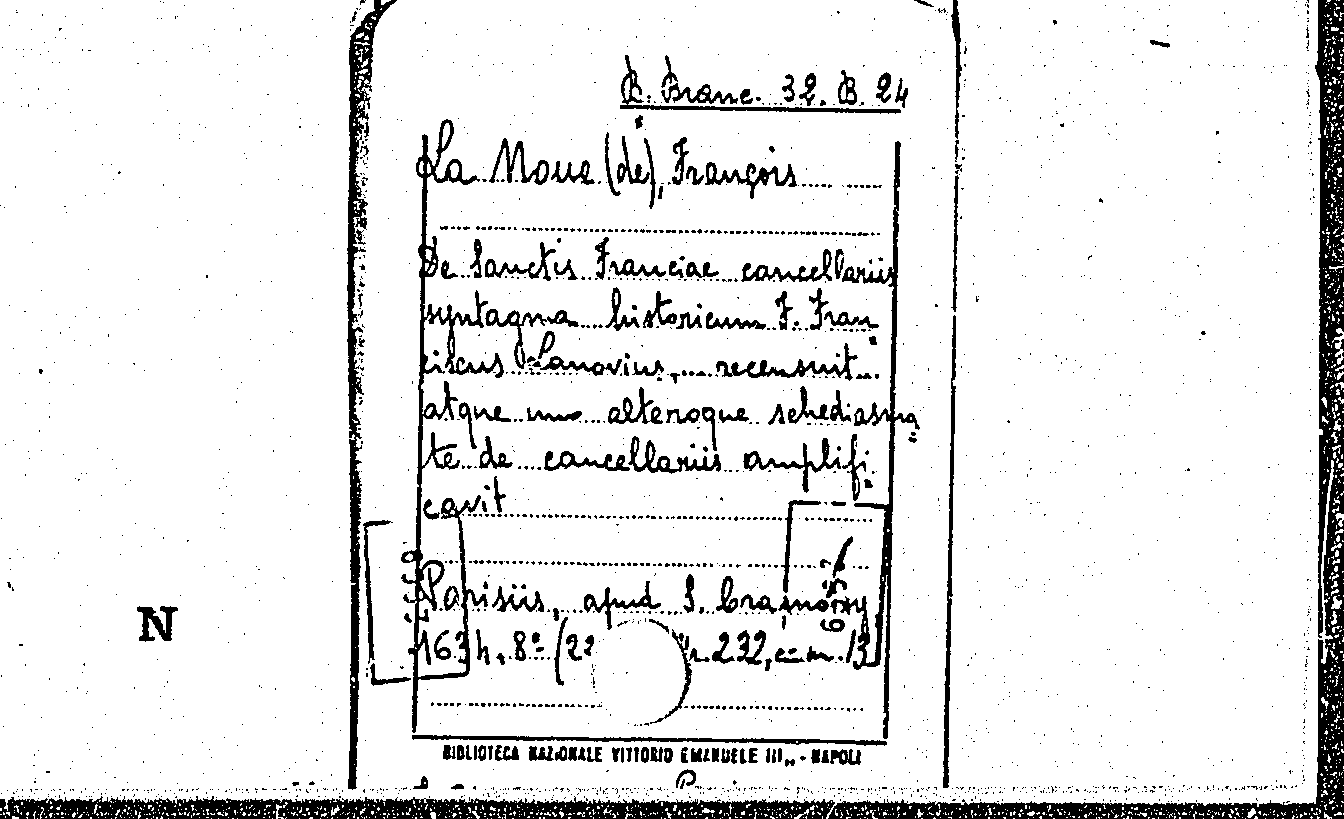 B. Branc. 32. B. 24
La Noue (de), François
De Sanctis Franciae cancellariis
syntagma historicum F. Fran
ciscus Lanovius, recensuit
atque uno alteroque schediasma
te de cancellariis amplifi
cavit
Parisiis, apud S. Cramoisy
1634, 8º (22 232, cm. 13
N
BIBLIOTECA NAZIONALE VITTORIO EMANUELE III„ - NAPOLI